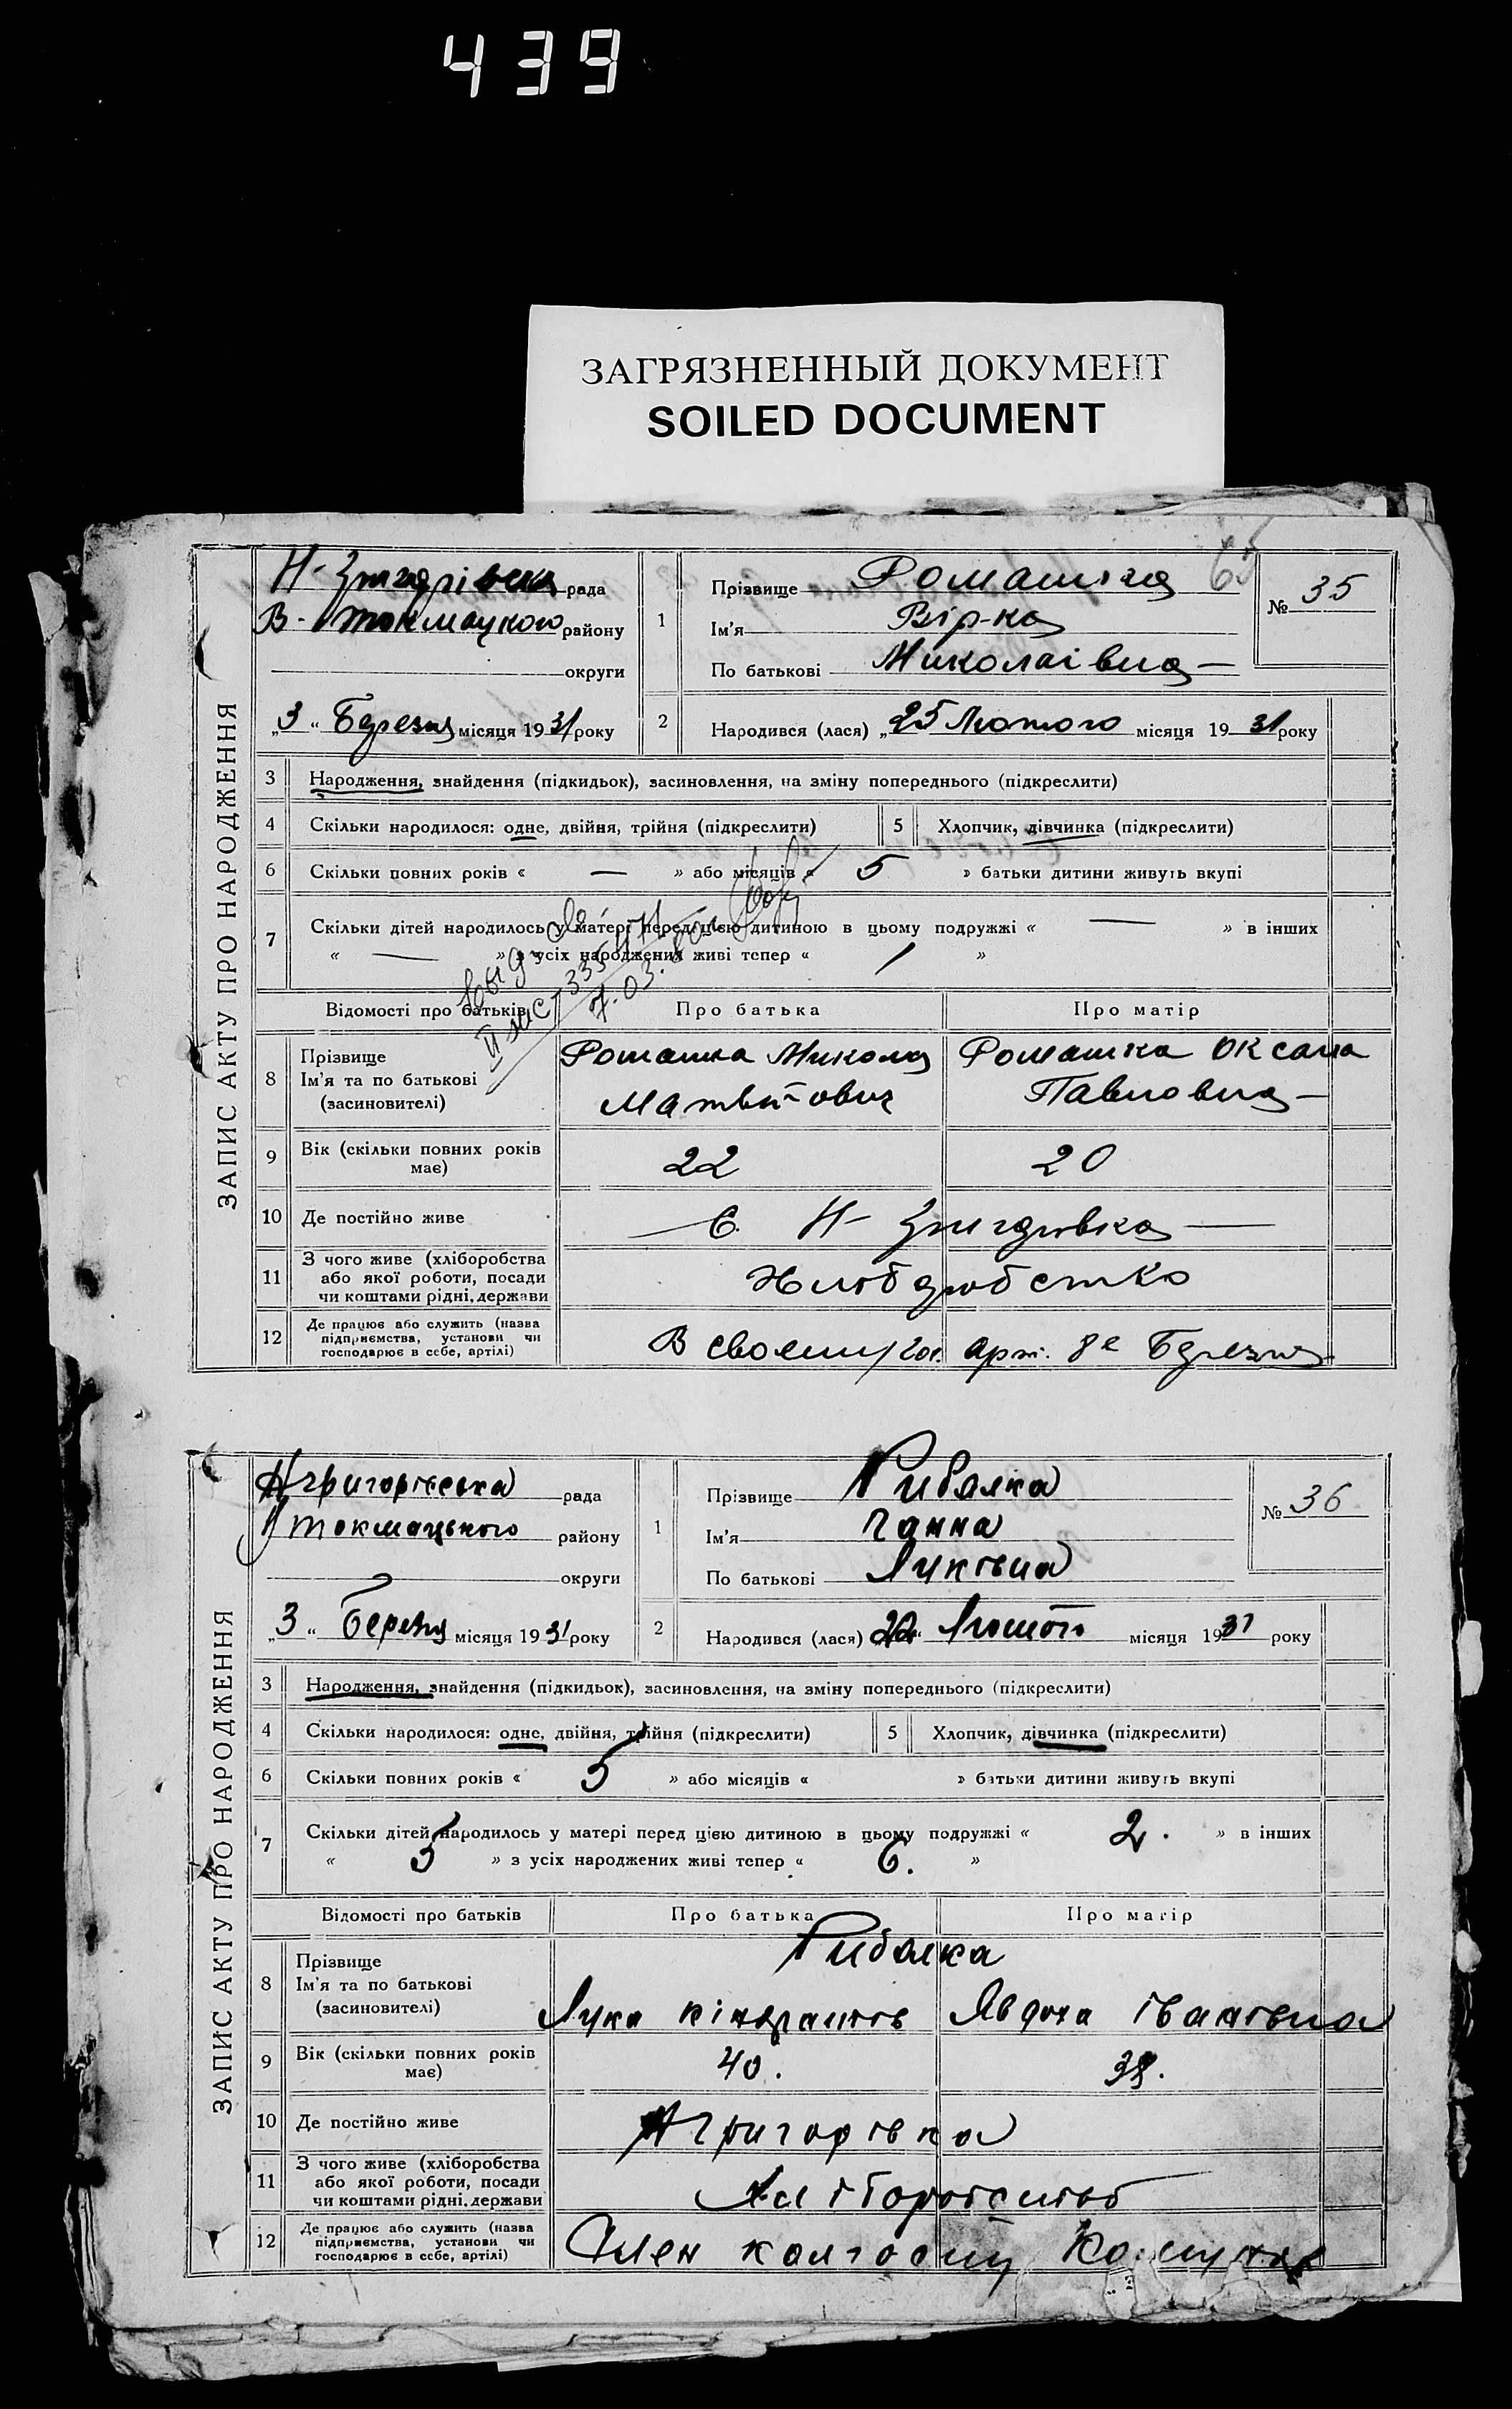 439
ЗАГРЯЗНЕННЫЙ ДОКУМЕНТ
SOILED DOCUMENT
65
ЗАПИС АКТУ ПРО НАРОДЖЕННЯ
рада
В- Токмацкого району
округи
1
Прізвище Ромашка
Ім'я Вірка
По батькові Миколаівна
№ 35
„3 “ Березня місяця 1931 року
2
Народився (лася) „25 Лютого місяця 1931 року
3 Народження, знайдення (підкидьок), засиновлення, на зміну попереднього (підкреслити)
4 Скільки народилося: одне, двійня, трійня (підкреслити)
5 Хлопчик, дівчинка (підкреслити)
6 Скільки повних років « — » або місяців « 5 » батьки дитини живуть вкупі
7 Скільки дітей народилось у матері перед цією дитиною в цьому подружжі « — » в інших
« — » з усіх народжених живі тепер « 1 »
Відомості про батьків
Про батька
Про матір
8 Прізвище
Ім'я та по батькові
(засиновителі)
Ромашка Микола
Матвійович
Ромашка Оксана
Павловна
9 Вік (скільки повних років має)
22
20
10 Де постійно живе
11 З чого живе (хліборобства
або якої роботи, посади
чи коштами рідні, держави
12 Де працює або служить (назва
підприємства, установи чи
господарює в себе, артілі)
арт. 8е Березня
ЗАПИС АКТУ ПРО НАРОДЖЕННЯ
Нгригорівська рада
Токмацького району
округи
1
Прізвище Рибалка
Ім'я Ганна
По батькові Луківна
№ 36
„3 “ Березня місяця 1931 року
2
Народився (лася) 22 “ Лютого місяця 1931 року
3 Народження, знайдення (підкидьок), засиновлення, на зміну попереднього (підкреслити)
4 Скільки народилося: одне, двійня, трійня (підкреслити)
5 Хлопчик, дівчинка (підкреслити)
6 Скільки повних років « 5 » або місяців « » батьки дитини живуть вкупі
7 Скільки дітей народилось у матері перед цією дитиною в цьому подружжі « 2. » в інших
« 5 » з усіх народжених живі тепер « 6. »
Відомості про батьків
Про батька
Про матір
8 Прізвище
Ім'я та по батькові
(засиновителі)
Рибалка
Лука Кіндратів
Явдоха Іванівна
9 Вік (скільки повних років має)
40.
38.
10 Де постійно живе
Нгригорівка
11 З чого живе (хліборобства
або якої роботи, посади
чи коштами рідні, держави
12 Де працює або служить (назва
підприємства, установи чи
господарює в себе, артілі)
Член колгоспу